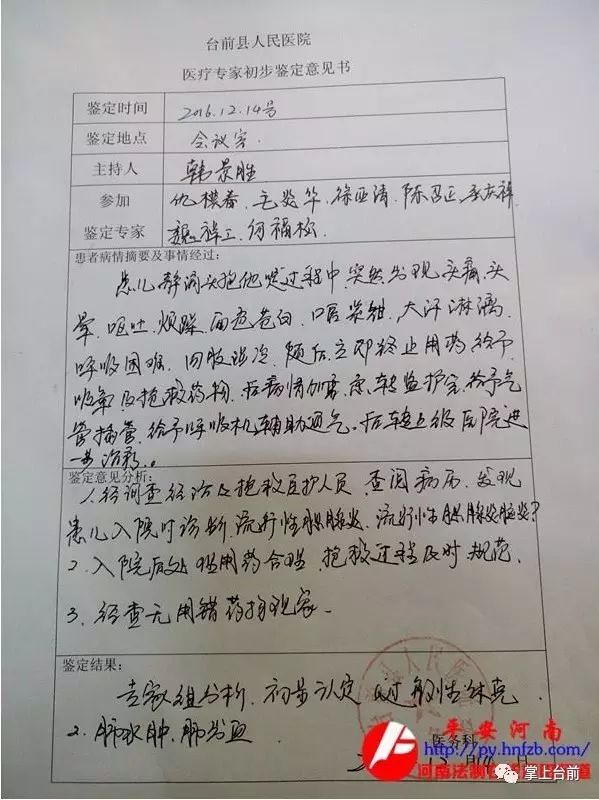 台前县人民医院
医疗专家初步鉴定意见书
鉴定时间 2016.12.14号
鉴定地点 会议室.
主持人 韩景胜
参加
鉴定专家
患者病情摘要及事情经过:
患儿静滴头孢他啶过程中,突然出现头痛、头
晕、呕吐、烦躁、面色苍白、口唇紫绀、大汗淋漓,
呼吸困难、四肢湿冷,随后立即终止用药给予
吸氧及抢救药物,后病情加重,转监护室,给予气
管插管,给予呼吸机辅助通气。后转上级医院进
一步治疗。
鉴定意见分析:
1.经调查经治及抢救医护人员,查阅病历,发现
患儿入院时诊断 流行性腮腺炎、流行性腮腺炎脑炎?
2、入院后处理用药合理,抢救过程及时规范.
3、经查无用错药物现象.
鉴定结果:
专家组分析,初步认定 过敏性休克
2、肺水肿、肺出血
医务科
平安河南
http://py.hnfzb.com/
河南法制
掌上台前